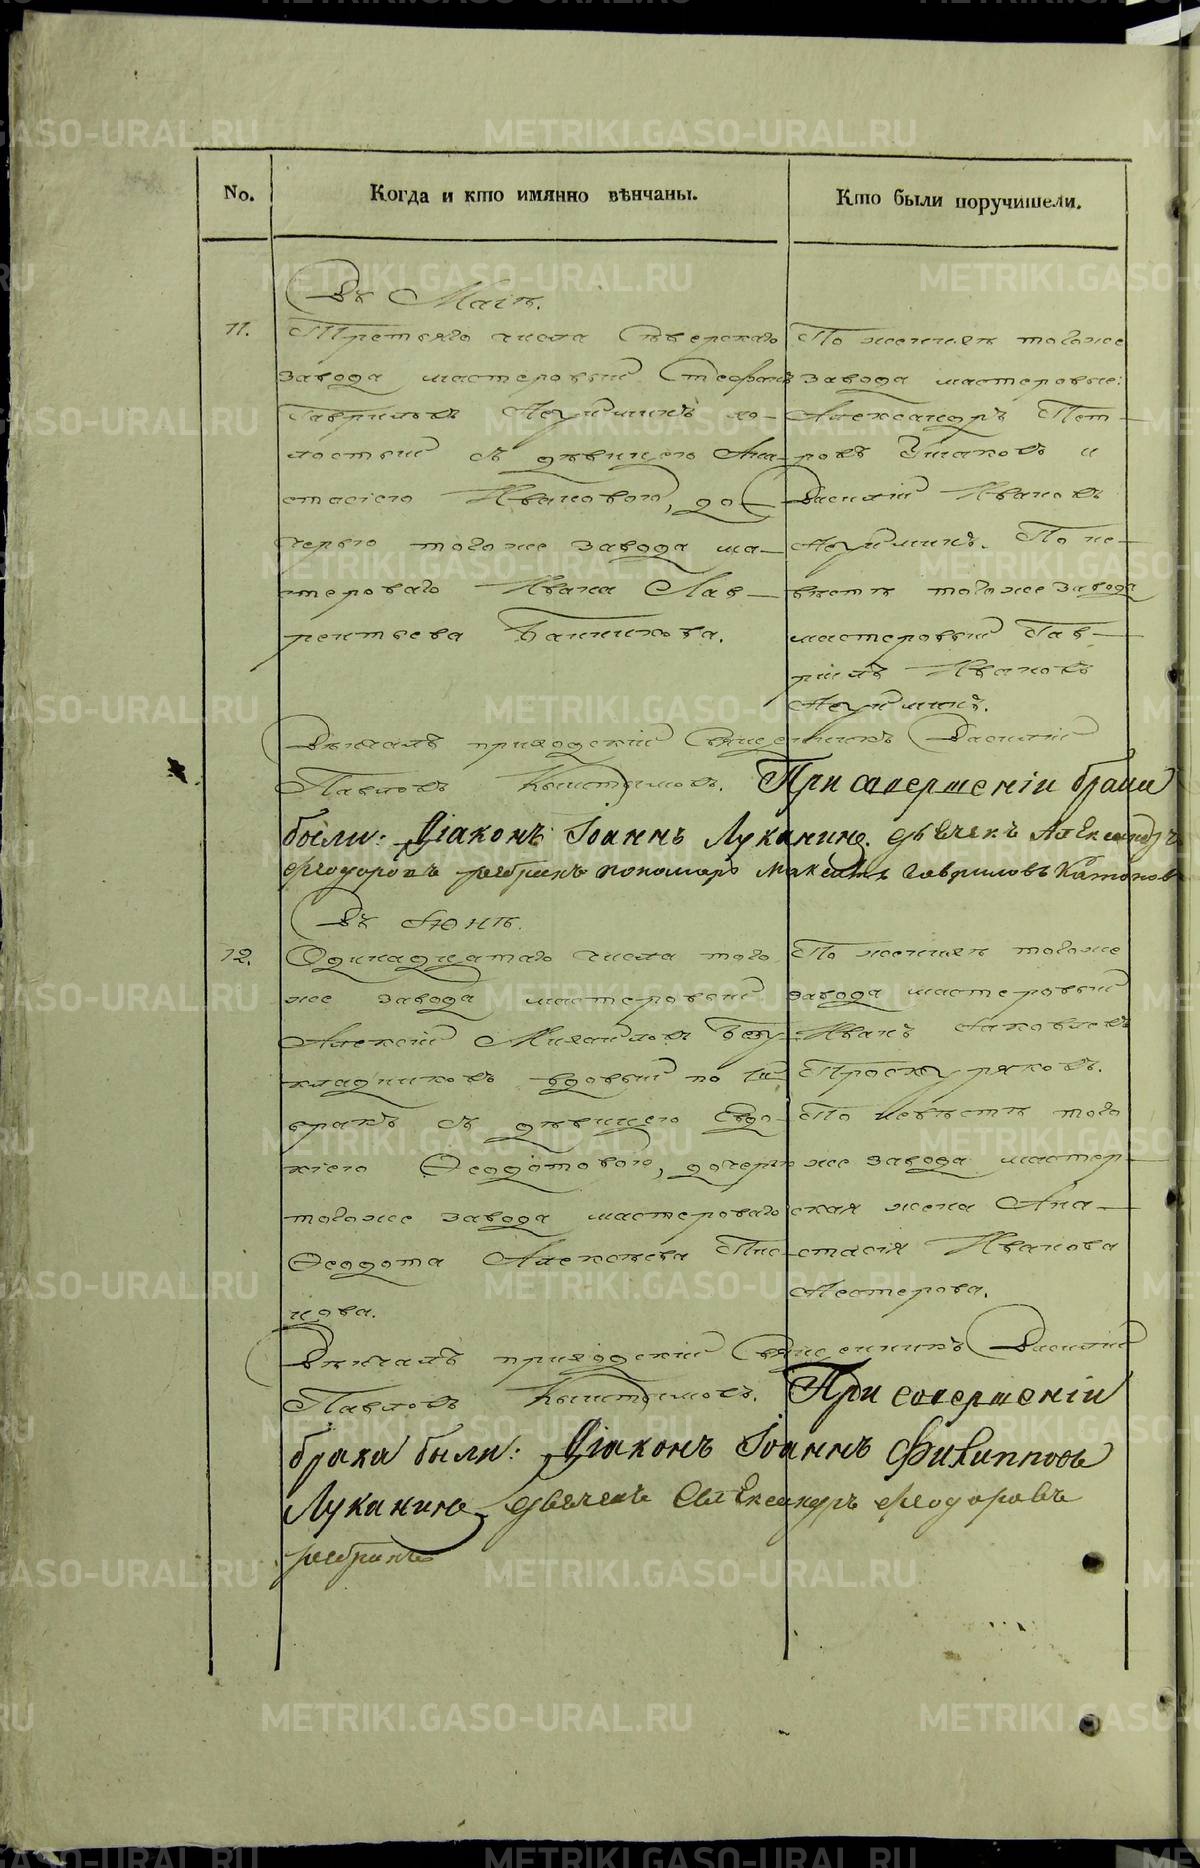 No.
Когда и кто имянно вѣнчаны.
Кто были поручители.
Въ Маіѣ.
11.
Третьяго числа Сѣверскаго
завода мастеровый Стефанъ
Гавриловъ Неуйминъ хо-
лостый съ дѣвицею Ана-
стасіею Ивановою, до-
черью тогоже завода ма-
стероваго Ивана Лав-
рентьева Банникова.
По женихѣ тогоже
завода мастеровые:
Александръ Пет-
ровъ Ушаковъ и
Василій Ивановъ
Неуйминъ. По не-
вѣстѣ тогоже завода
мастеровый Гав-
рiилъ Ивановъ
Неуйминъ.
Вѣнчалъ приходскій Священникъ Василій
Павловъ Кыштымовъ. При совершеніи брака
были: Діаконъ Іоаннъ Луканинъ. дьячекъ Александръ
Феодоровъ Ребринъ пономарь Максимъ Гавриловъ
Въ Іюнѣ.
12.
Одинадцатаго числа того
же завода мастеровый
Алексій Михайловъ Безу-
кладниковъ вдовый по
бракѣ съ дѣвицею Евдо-
кіею Ѳеодотовою, дочерью
тогоже завода мастероваго
Ѳеодота Алексѣева Пис-
цова.
По женихѣ тогоже
завода мастеровый
Иванъ Яковлевъ
Проскуряковъ.
По невѣстѣ того
же завода мастер-
ская жена Ана-
стасія Иванова
Нестерова.
Вѣнчалъ приходскій Священникъ Василій
Павловъ Кыштымовъ. При совершеніи
брака были: Діаконъ Іоаннъ Филипповъ
Луканинъ дьячекъ Александръ Феодоровъ
Ребринъ
METRIKI.GASO-URAL.RU